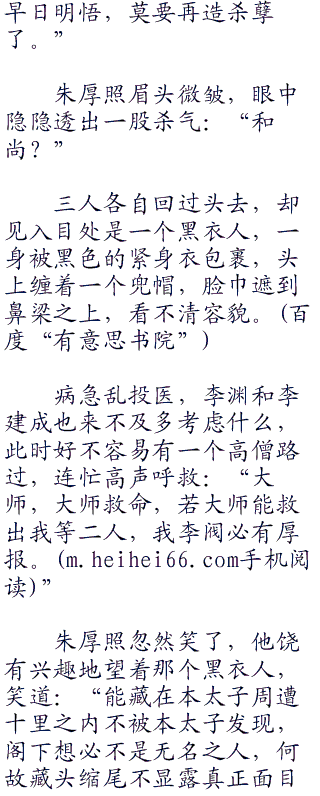 早日明悟，莫要再造杀孽
了。”
朱厚照眉头微皱，眼中
隐隐透出一股杀气：“和
尚？”
三人各自回过头去，却
见入目处是一个黑衣人，一
身被黑色的紧身衣包裹，头
上缠着一个兜帽，脸巾遮到
鼻梁之上，看不清容貌。(百
度“有意思书院”)
病急乱投医，李渊和李
建成也来不及多考虑什么，
此时好不容易有一个高僧路
过，连忙高声呼救：“大
师，大师救命，若大师能救
出我等二人，我李阀必有厚
报。(m.heihei66.com手机阅
读)”
朱厚照忽然笑了，他饶
有兴趣地望着那个黑衣人，
笑道：“能藏在本太子周遭
十里之内不被本太子发现，
阁下想必不是无名之人，何
故藏头缩尾不显露真正面目